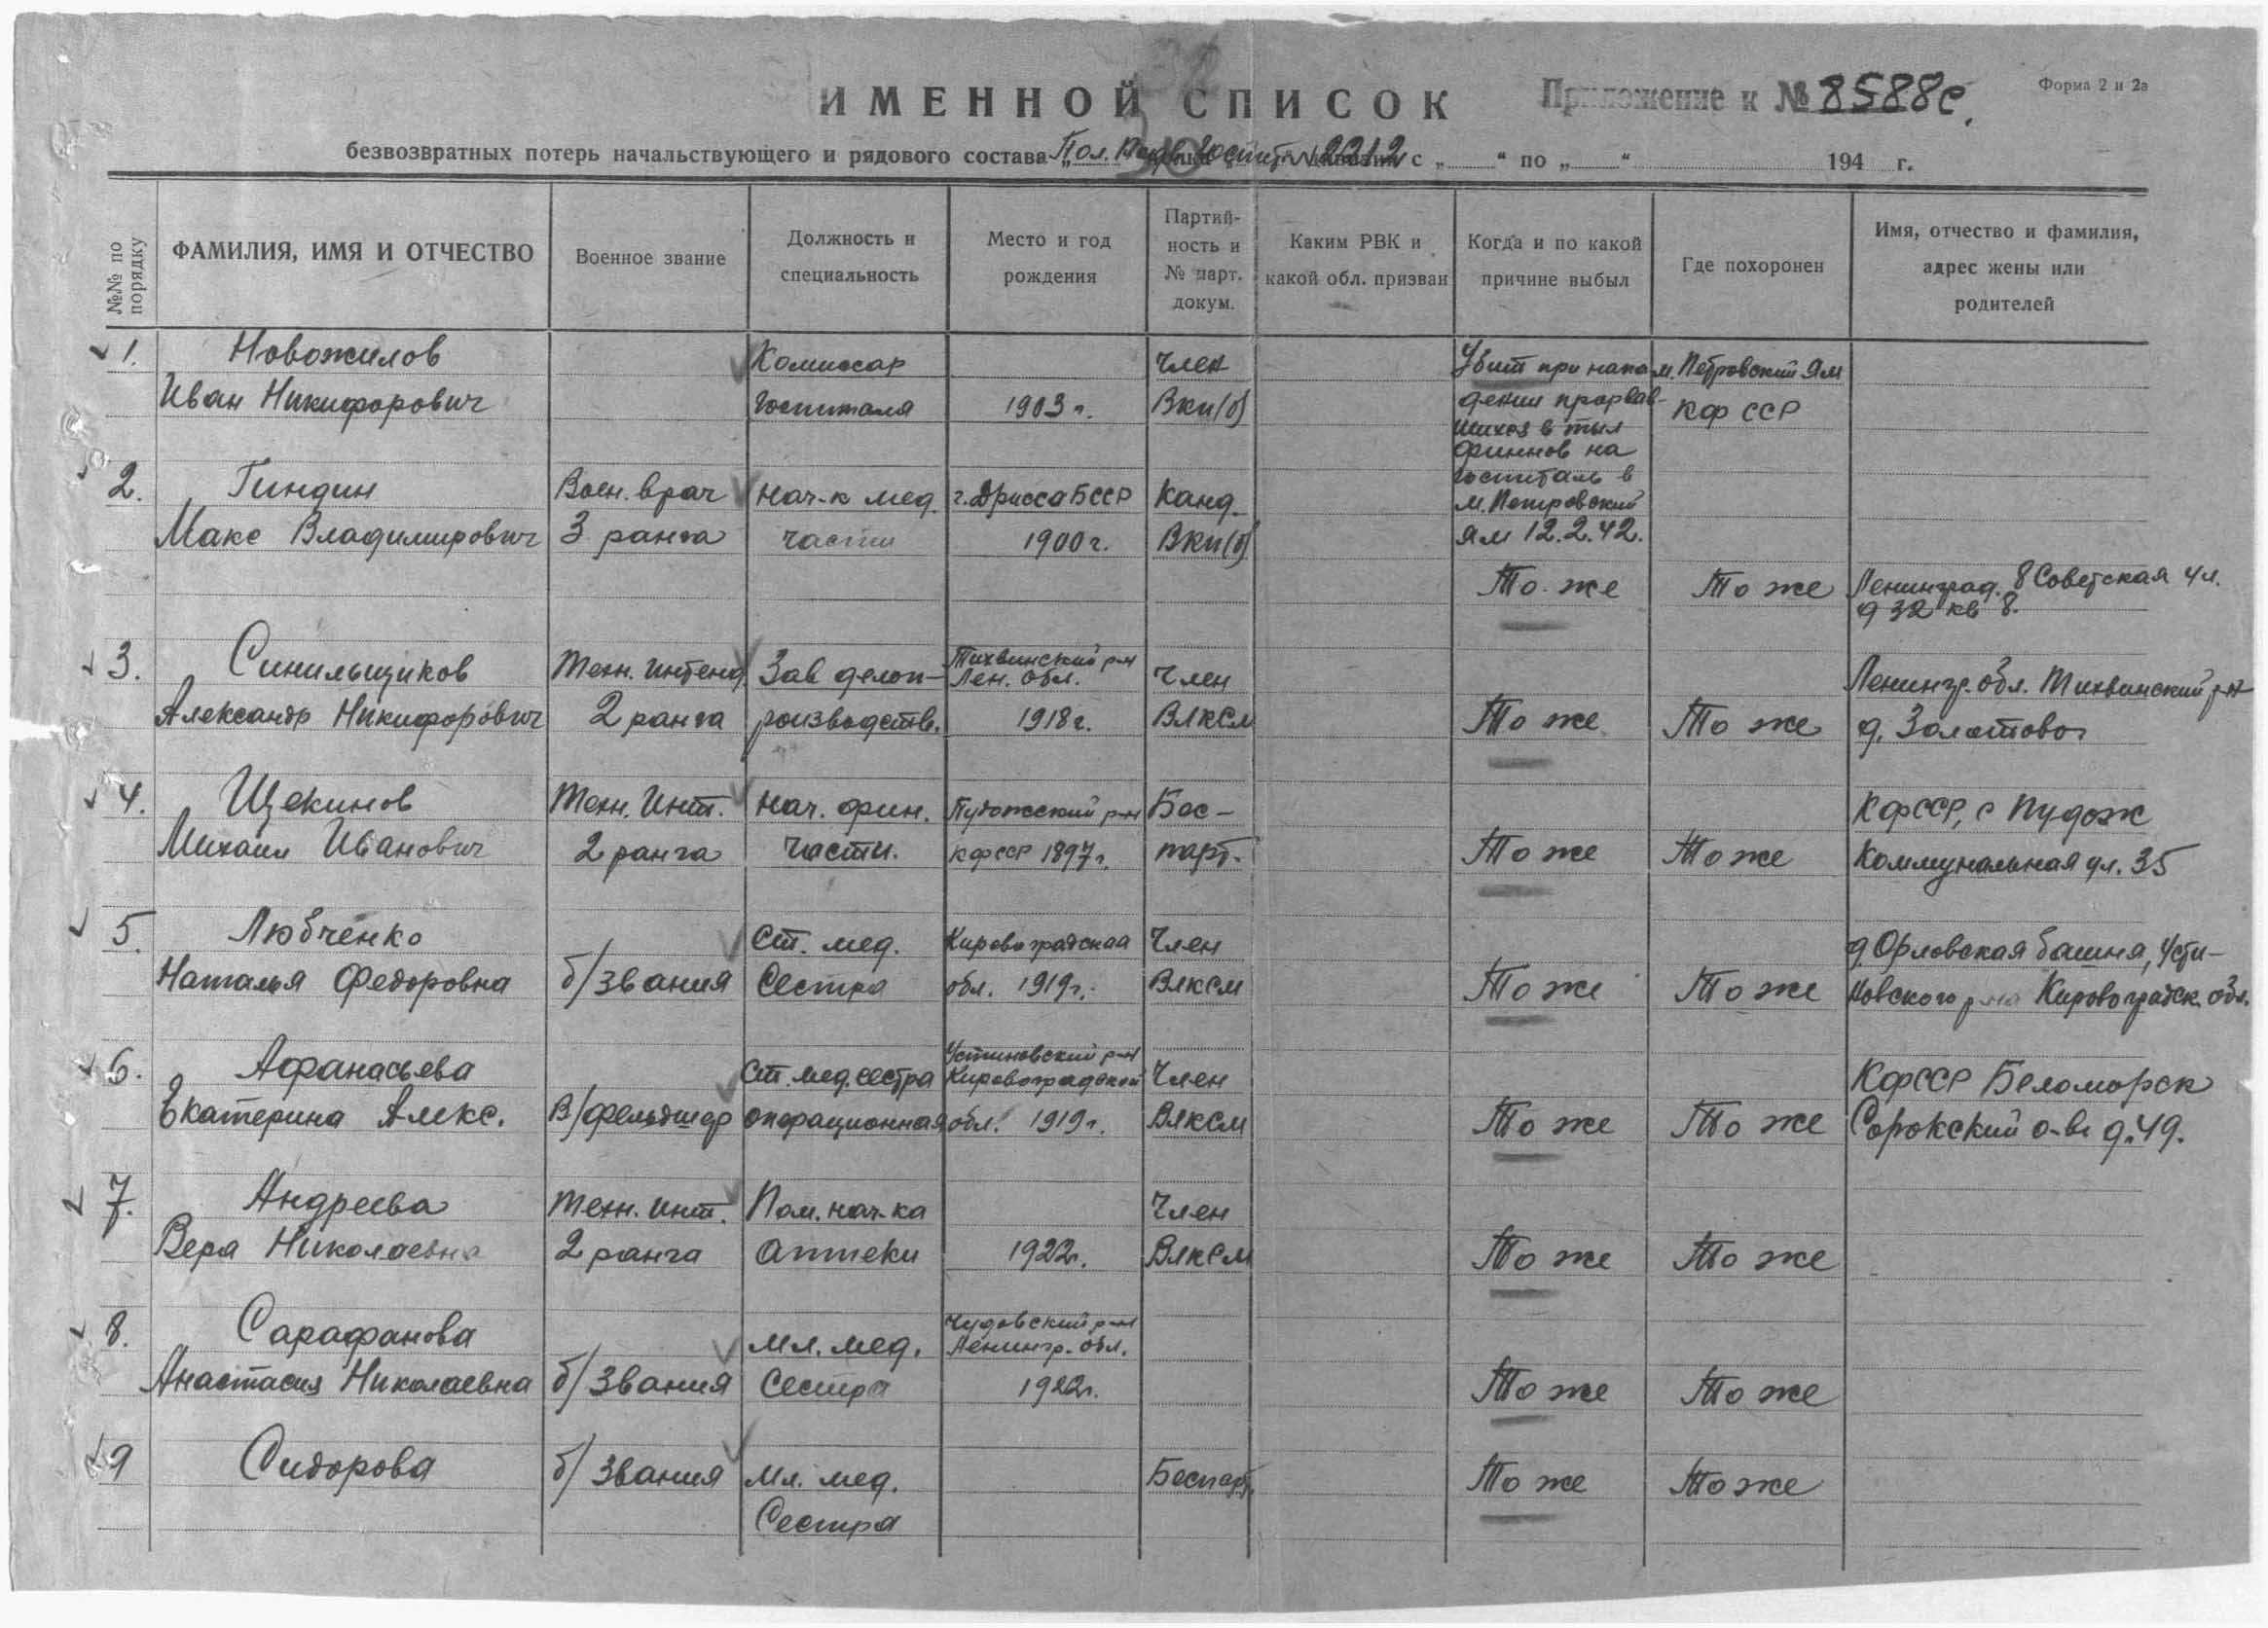 ИМЕННОЙ СПИСОК
Приложение к № 8588с.
Форма 2 и 2а
безвозвратных потерь начальствующего и рядового состава Пол. госпит. № 2212 с „ “ по „ “ 194 г.
№№ по порядку
ФАМИЛИЯ, ИМЯ И ОТЧЕСТВО
Военное звание
Должность и
специальность
Место и год
рождения
Партий-
ность и
№ парт.
докум.
Каким РВК и
какой обл. призван
Когда и по какой
причине выбыл
Где похоронен
Имя, отчество и фамилия,
адрес жены или
родителей
1. Новожилов
Иван Никифорович
Комиссар
госпиталя
1903 г.
Член
ВКП(б)
Убит при напа-
дении прорвав-
шихся в тыл
финнов на
госпиталь в
м. Петровский
Ям 12.2.42.
м. Петровский Ям
КФ ССР
2. Гиндин
Макс Владимирович
Воен. врач
3 ранга
Нач-к мед.
части
г. Дрисса БССР
1900 г.
Канд.
ВКП(б)
То же
То же
Ленинград. 8 Советская ул.
д 32 кв 8.
3. Синильщиков
Александр Никифорович
Техн. интенд.
2 ранга
Зав делоп-
роизводств.
Тихвинский р-н
Лен. обл.
1918 г.
Член
ВЛКСМ
То же
То же
Ленингр. обл. Тихвинский р-н
д. Золотово
4. Щекинов
Михаил Иванович
Техн. Инт.
2 ранга
Нач. фин.
части.
Пудожский р-н
КФССР 1897 г.
Бес-
парт.
То же
То же
КФССР, с Пудож
Коммунальная ул. 35
5. Любченко
Наталья Федоровна
б/звания
Ст. мед.
Сестра
Кировоградская
обл. 1919 г.
Член
ВЛКСМ
То же
То же
д. Орловская башня, Усти-
новского р-на Кировоградск. обл.
6. Афанасьева
Екатерина Алекс.
В/фельдшер
Ст. мед. сестра
операционная
Устиновский р-н
Кировоградской
обл. 1919 г.
Член
ВЛКСМ
То же
То же
КФССР Беломорск
Сорокский о-в д. 49.
7. Андреева
Вера Николаевна
Техн. Инт.
2 ранга
Пом. нач-ка
Аптеки
1922 г.
Член
ВЛКСМ
То же
То же
8. Сарафанова
Анастасия Николаевна
б/звания
Мл. мед.
Сестра
Чудовский р-н
Ленингр. обл.
1922 г.
То же
То же
9 Сидорова
б/звания
Мл. мед.
Сестра
Беспарт.
То же
То же